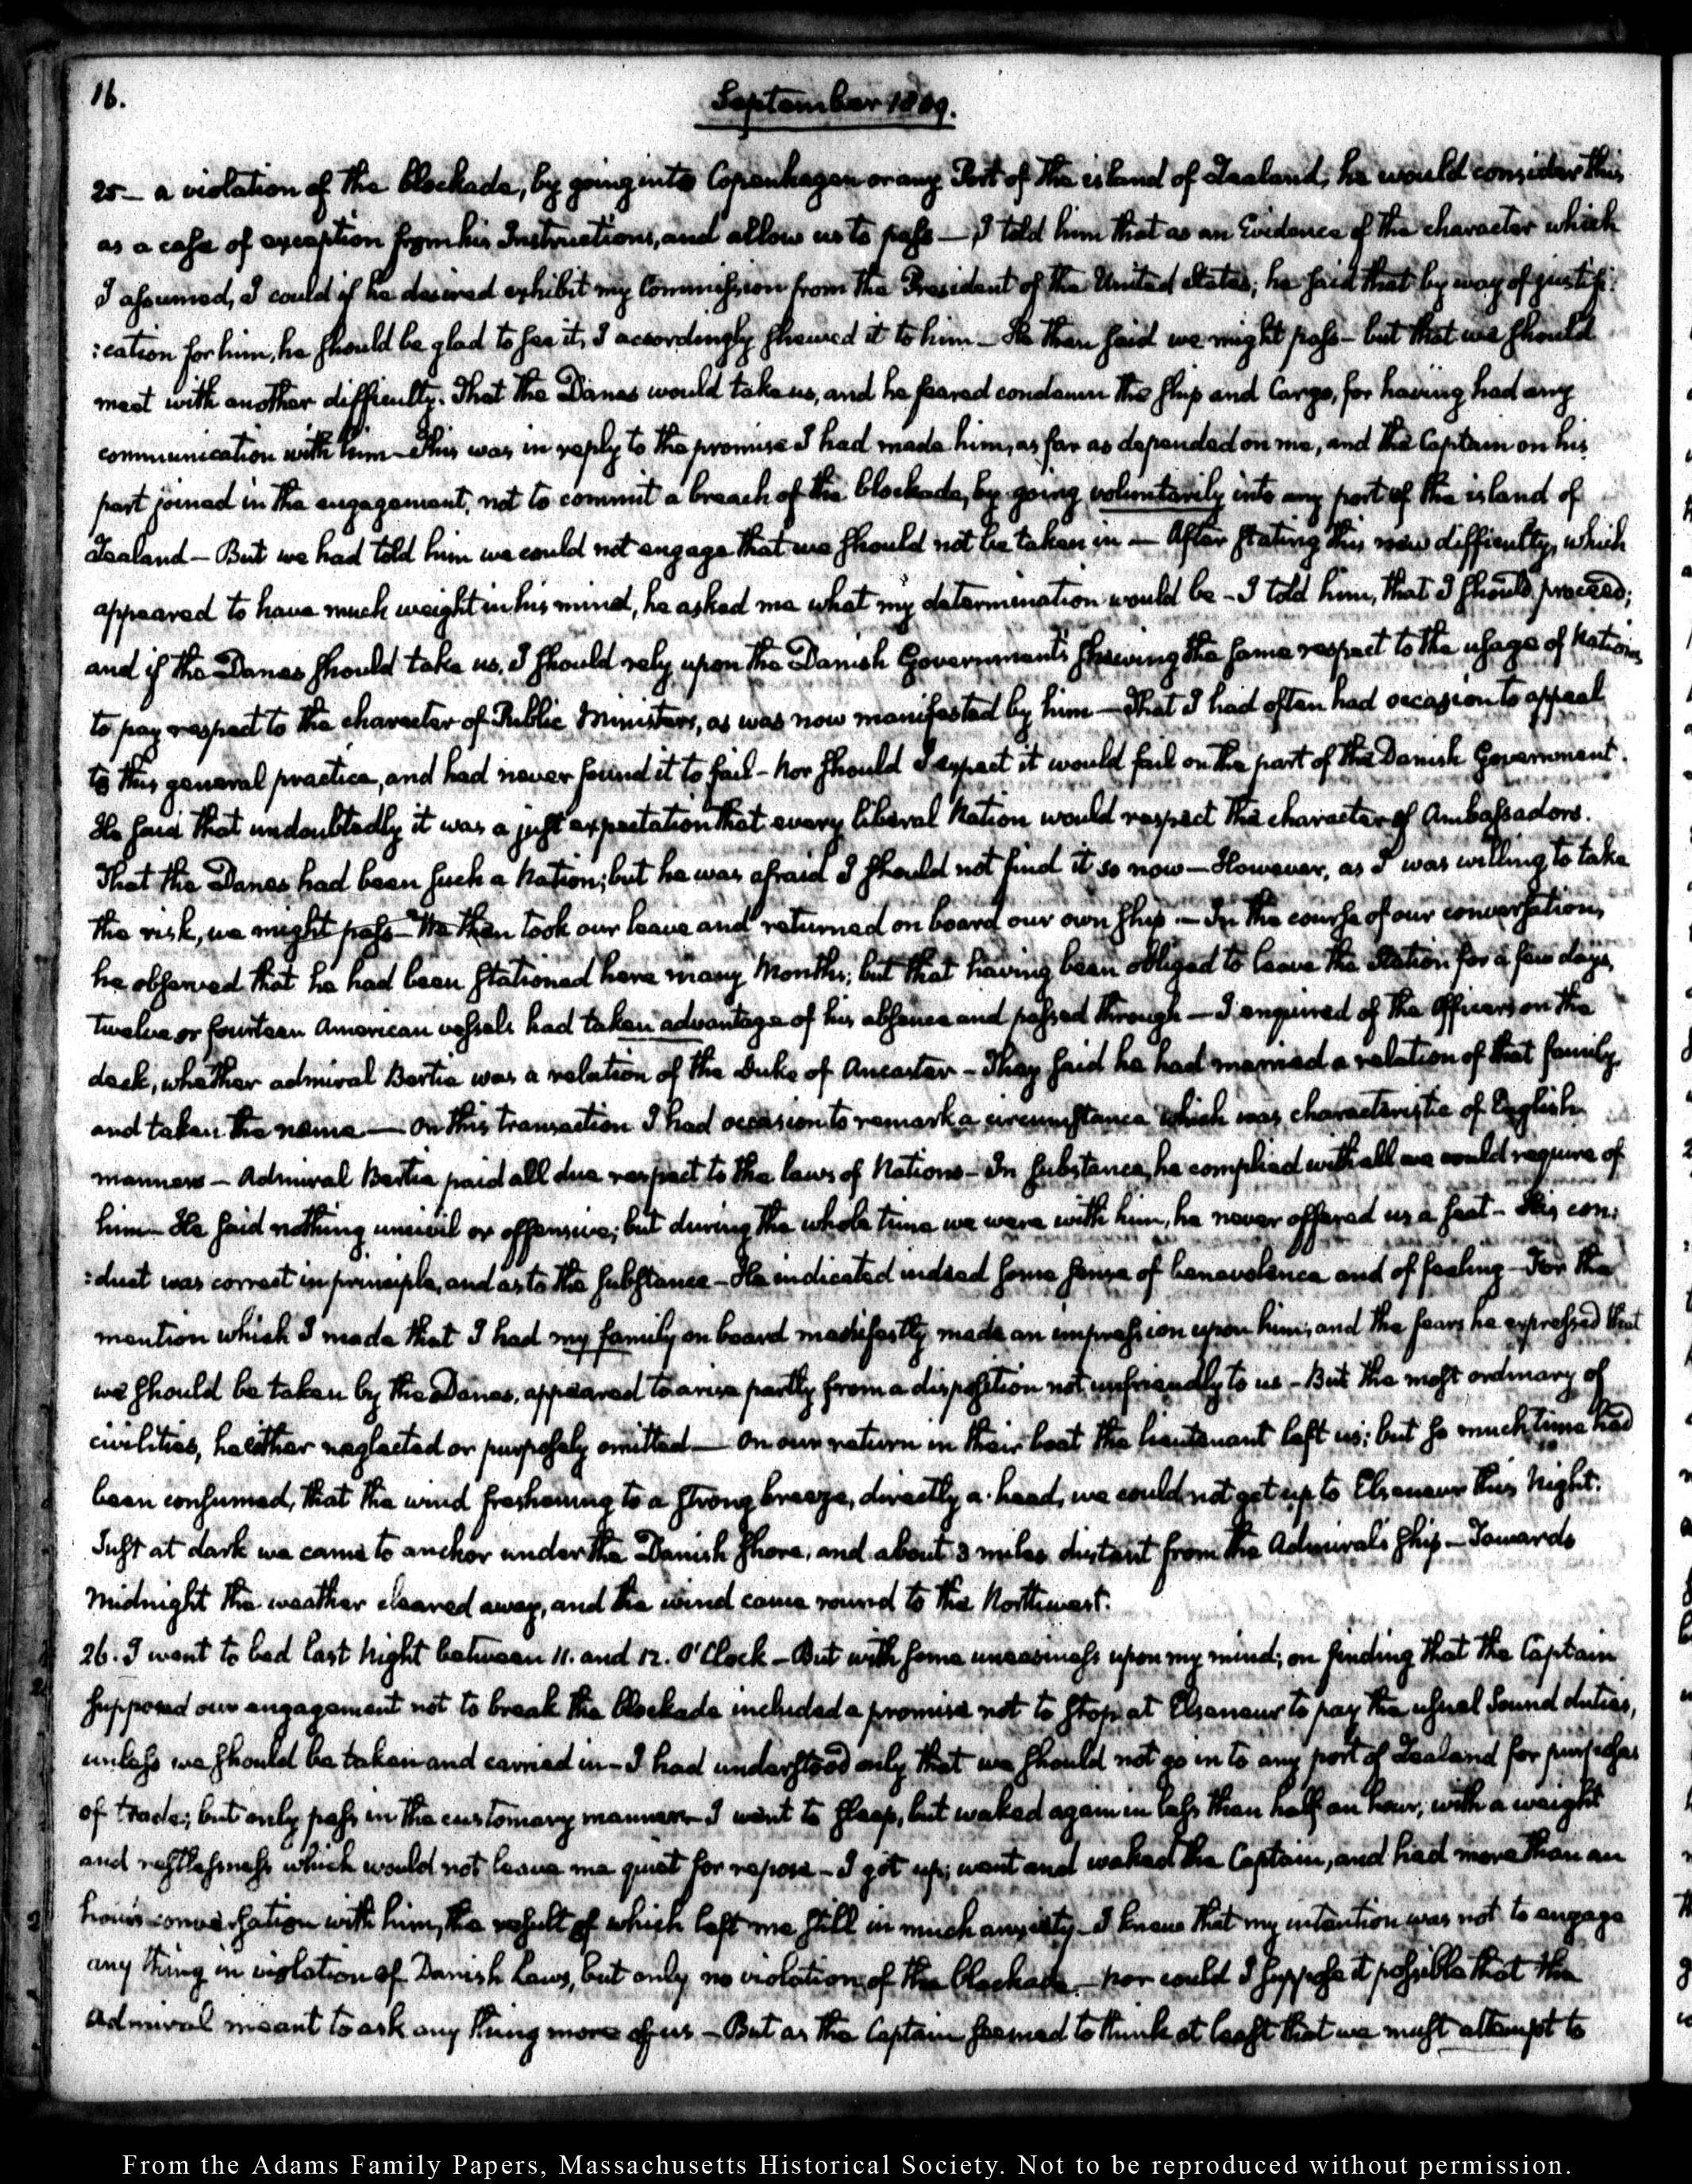 16.
September 1809.
25— a violation of the blockade, by going into Copenhagen or any Port of the island of Zealand, he would consider this
as a case of exception from his Instructions, and allow us to pass — I told him that as an Evidence of the character which
I assumed, I could if he desired exhibit my Commission from the President of the United States; he said that by way of justifi:
:cation for him, he should be glad to see it, I accordingly shewed it to him — He then said we might pass — but that we should
meet with another difficulty. That the Danes would take us, and he feared condemn the ship and Cargo, for having had any
communication with him — This was in reply to the promise I had made him, as far as depended on me, and the Captain on his
part joined in the engagement, not to commit a breach of the blockade, by going voluntarily into any port of the island of
Zealand — But we had told him we could not engage that we should not be taken in — After stating this new difficulty, which
appeared to have much weight in his mind, he asked me what my determination would be — I told him, that I should proceed;
and if the Danes should take us, I should rely upon the Danish Government's shewing the same respect to the usage of Nations
to pay respect to the character of Public Ministers, as was now manifested by him — That I had often had occasion to appeal
to this general practice, and had never found it to fail — Nor should I expect it would fail on the part of the Danish Government.
He said that undoubtedly it was a just expectation that every liberal Nation would respect the character of Ambassadors.
That the Danes had been such a Nation; but he was afraid I should not find it so now — However, as I was willing to take
the risk, we might pass — We then took our leave and returned on board our own ship. — In the course of our conversation,
he observed that he had been stationed here many Months; but that having been obliged to leave the Station for a few days,
twelve or fourteen American vessels had taken advantage of his absence and passed through — I enquired of the Officers on the
deck, whether admiral Bertie was a relation of the Duke of Ancaster — They said he had married a relation of that family,
and taken the name — On this transaction I had occasion to remark a circumstance which was characteristic of English
manners — Admiral Bertie paid all due respect to the laws of Nations — In substance, he complied with all we could require of
him — He said nothing uncivil or offensive; but during the whole time we were with him, he never offered us a seat — His con:
:duct was correct in principle, and as to the substance — He indicated indeed some sense of benevolence and of feeling — For the
mention which I made that I had my family on board manifestly made an impression upon him; and the fears he expressed that
we should be taken by the Danes, appeared to arise partly from a disposition not unfriendly to us — But the most ordinary of
civilities, he either neglected or purposely omitted — On our return in their boat the lieutenant left us; but so much time had
been consumed, that the wind freshening to a strong breeze, directly a-head, we could not get up to Elseneur this Night.
Just at dark we came to anchor under the Danish shore, and about 3 miles distant from the Admiral's ship — Towards
Midnight the weather cleared away, and the wind came round to the Northwest.
26. I went to bed last Night between 11. and 12. O'Clock — But with some uneasiness upon my mind; on finding that the Captain
supposed our engagement not to break the blockade included a promise not to stop at Elseneur to pay the usual Sound duties,
unless we should be taken and carried in — I had understood only that we should not go in to any port of Zealand for purposes
of trade; but only pass in the customary manner — I went to sleep, but waked again in less than half an hour; with a weight
and restlessness which would not leave me quiet for repose — I got up; went and waked the Captain, and had more than an
hour's conversation with him, the result of which left me still in much anxiety — I knew that my intention was not to engage
any thing in violation of Danish Laws, but only no violation of the blockade — nor could I suppose it possible that the
Admiral meant to ask any thing more of us. — But as the Captain seemed to think at least that we must attempt to
From the Adams Family Papers, Massachusetts Historical Society. Not to be reproduced without permission.